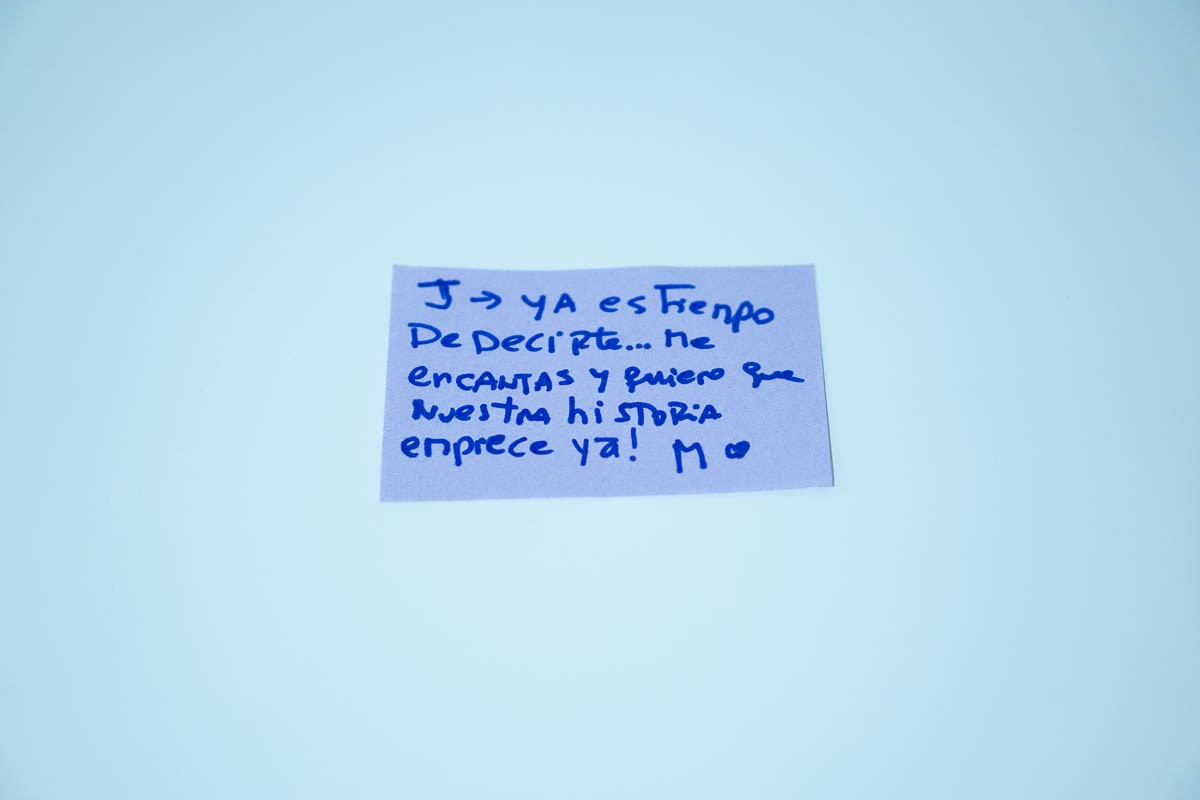 J → YA es Tiempo
De Decirte... Me
enCANTAS y quiero que
Nuestra hiSTORiA
empiece ya! M ♥